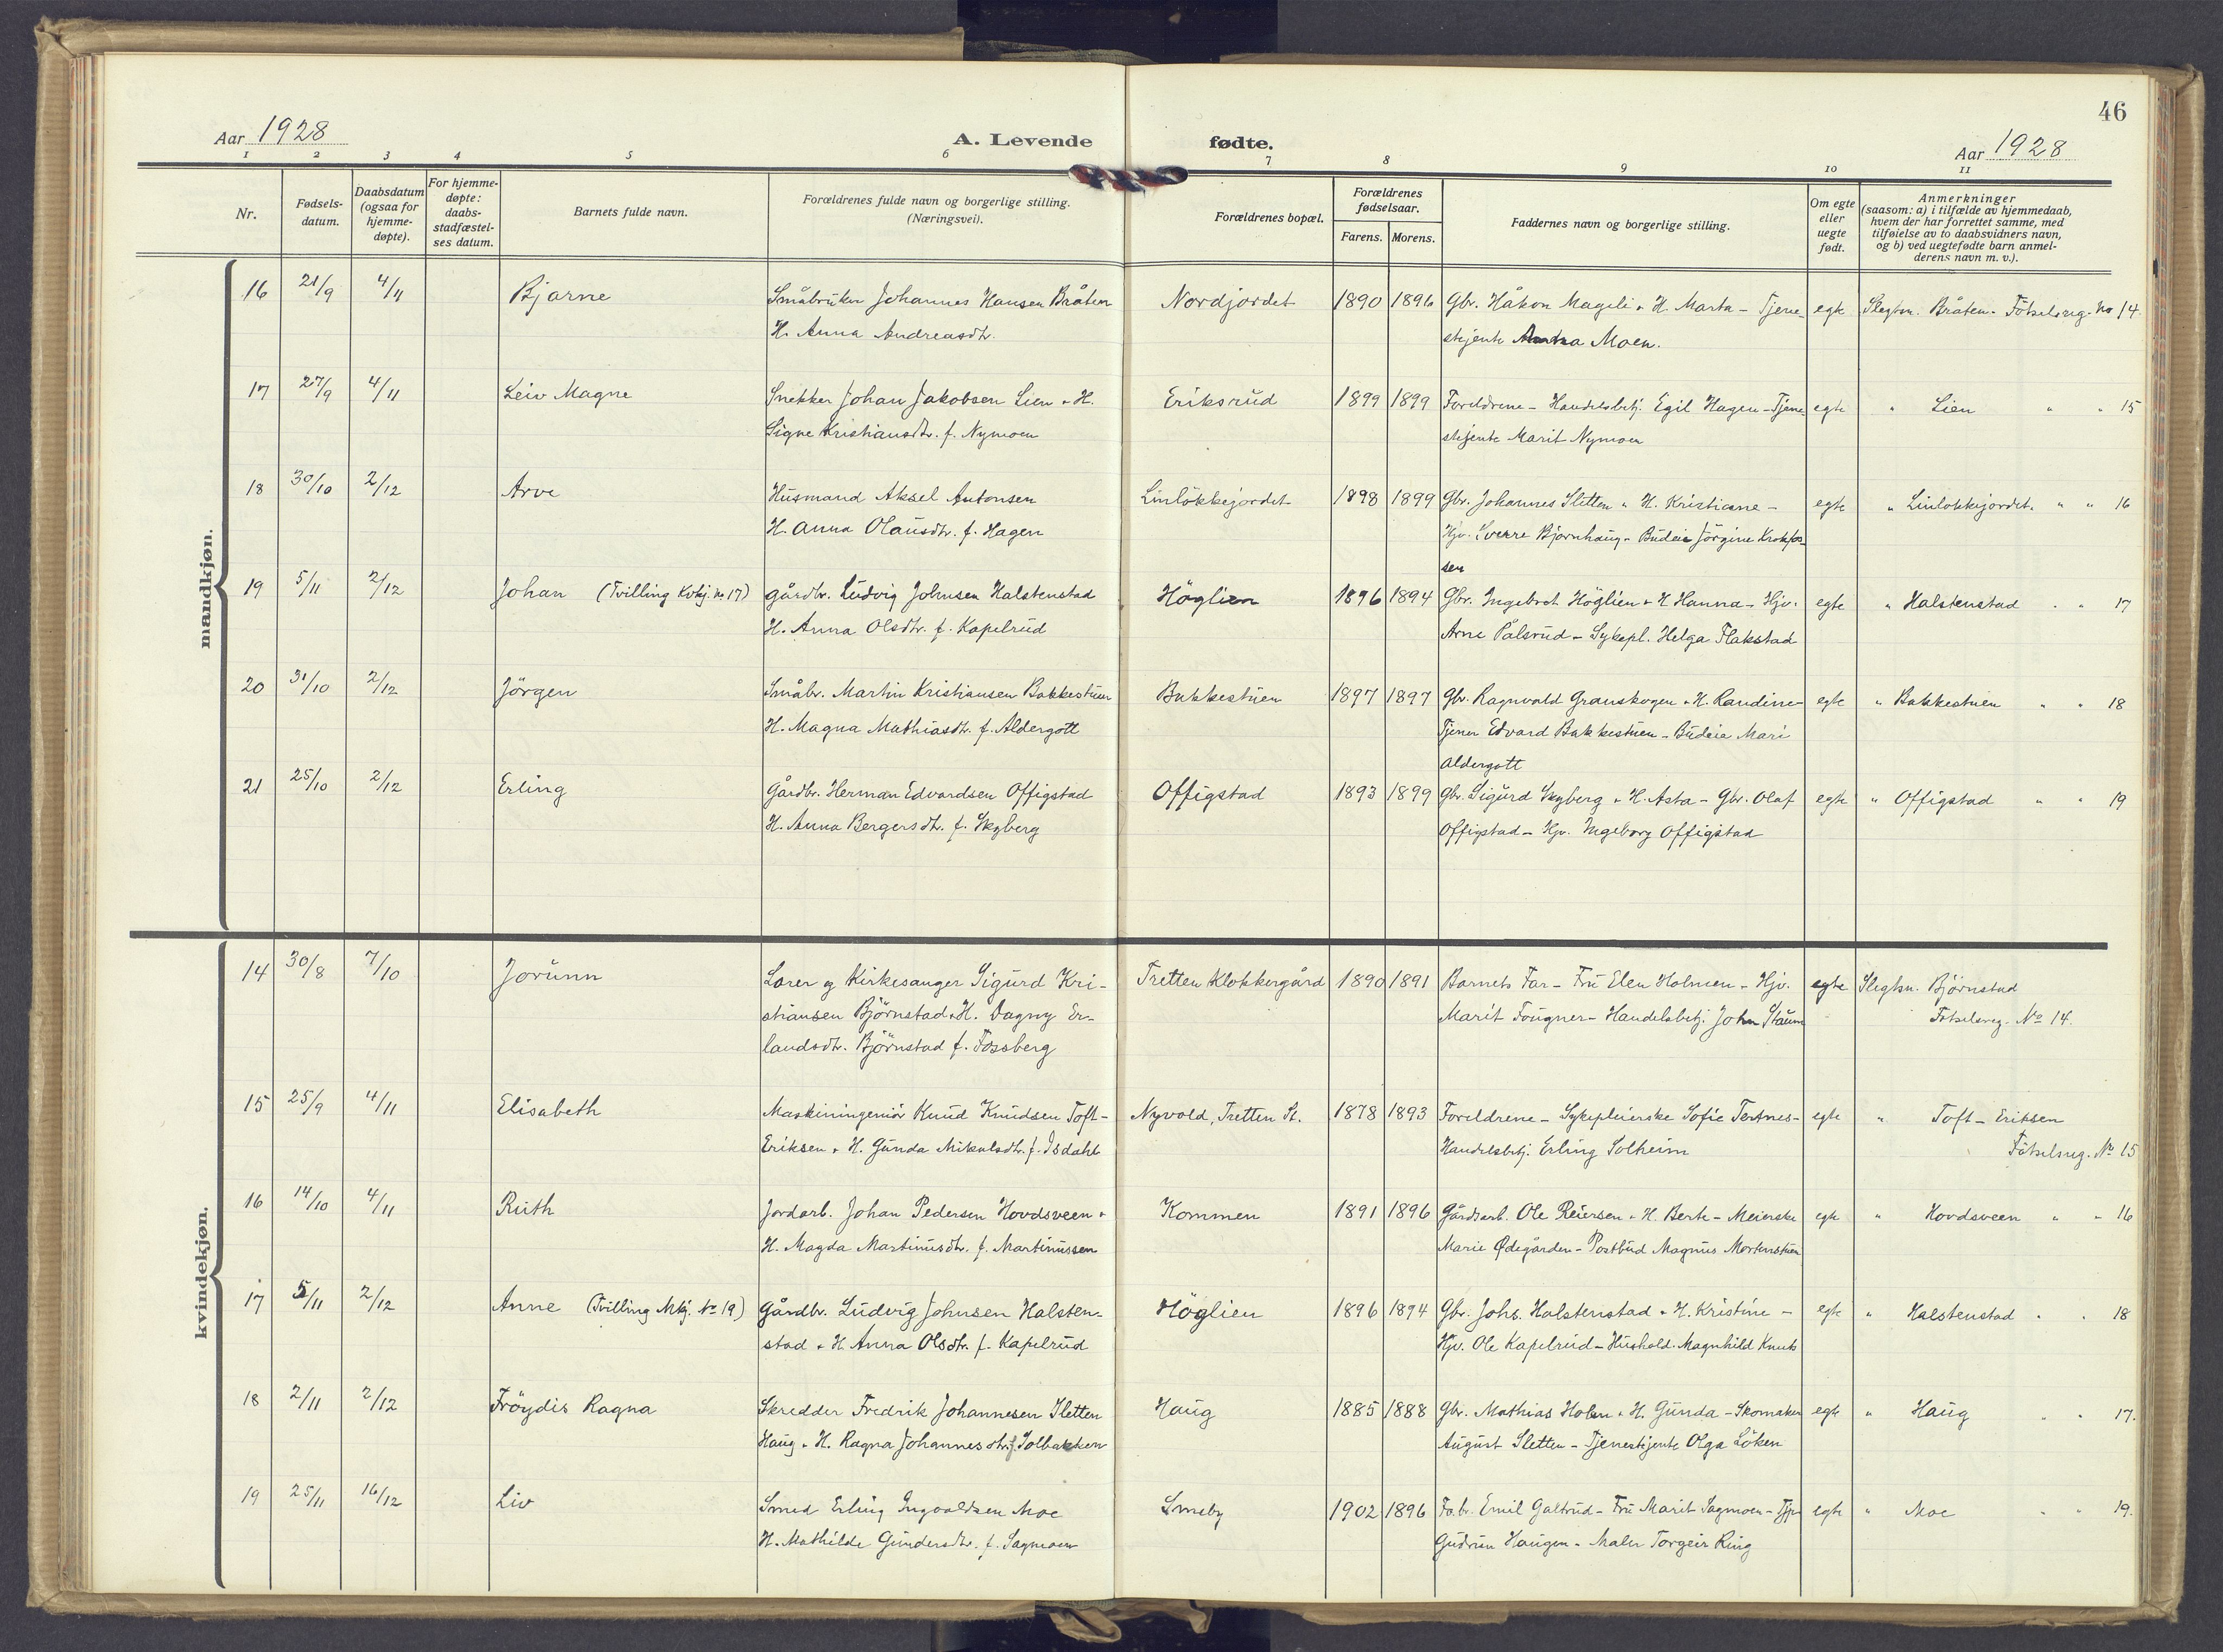 46
Aar 1928
A. Levende fødte.
Aar 1928
1 2 3 4 5 6 7 8 9 10 11
Nr.
Fødsels-
datum.
Daabsdatum
(ogsaa for
hjemme-
døpte).
For hjemme-
døpte:
daabs-
stadfæstel-
ses datum.
Barnets fulde navn.
Forældrenes fulde navn og borgerlige stilling.
(Næringsvei).
Forældrenes bopæl.
Forældrenes
fødselsaar.
Farens. Morens.
Faddernes navn og borgerlige stilling.
Om egte
eller
uegte
født.
Anmerkninger
(saasom: a) i tilfælde av hjemmedaab,
hvem der har forrettet samme, med
tilføielse av to daabsvidners navn,
og b) ved uegtefødte barn anmel-
derens navn m. v.).
mandkjøn.
16 21/9 4/11 Bjarne Småbruker Johannes Hansen Bråten Nordjordet 1890 1896 Gbr. Håkon Mageli + H. Marta - Tjene- egte Slegtsn. Bråten. Fötselsreg. No 14.
H. Anna Andreasdtr. stejente Moen.
17 27/9 4/11 Leiv Magne Snekker Johan Jakobsen Lien + H. Eriksrud 1899 1899 Foreldrene - Handelsbetj. Egil Hagen - Tjene egte " Lien " " 15
Signe Kristiansdtr. f. Nymoen stejente Marit Nymoen
18 30/10 2/12 Arve Husmand Aksel Antonsen Linlökkejordet 1898 1899 Gbr. Johannes Sletten + H. Kristianne - egte " Linlökkejordet. " " 16
H. Anna Olausdtr. f. Hagen Hjv. Sverre Björnhaug - Budeie Jörgine Krokfos-
sen
19 5/11 2/12 Johan (Tvilling Kvkj. no 17) gårdbr. Ludvig Johnsen Halstenstad Höglien 1896 1894 Gbr. Ingebret Höglien + H Hanna - Hjv. egte " Halstenstad " " 17
H. Anna Olsdtr. f. Kapelrud Arne Pålsrud - Sykepl. Helga Flakstad
20 31/10 2/12 Jörgen Småbr. Martin Kristiansen Bakkestuen Bakkestuen 1897 1897 Gbr. Ragnvald Granskogen + H. Randine - egte " Bakkestuen " " 18
H. Magna Mathiasdtr. f. Aldergott Tjener Edvard Bakkestuen - Budeie Mari
Aldergott
21 25/10 2/12 Erling Gårdbr. Herman Edvardsen Offigstad Offigstad 1893 1899 Gbr. Sigurd Skyberg + H. Asta - Gbr. Olaf egte " Offigstad " " 19
H. Anna Bergersdtr. f. Skyberg Offigstad - Hjv. Ingeborg Offigstad
kvindekjøn.
14 30/8 7/10 Jorunn Lærer og Kirkesanger Sigurd Kri- Tretten Klokkergård 1890 1891 Barnets Far - Fru Elen Holmen - Hjv. egte Slegtsn. Björnstad
stiansen Björnstad + H. Dagny Er- Marit Fougner - Handelsbetj. John Staum Fötselsreg. No 14.
landsdtr. Björnstad f. Fossberg
15 25/9 4/11 Elisabeth Maskiningeniör Knud Knudsen Toft- Nyvold, Tretten St. 1878 1893 Foreldrene - Sykepleierske Sofie Tertnes - egte " Toft-Eriksen
Eriksen + H. Gunda Mikalsdtr. f. Isdahl Handelsbetj. Erling Solheim Fötselsreg. No 15
16 14/10 4/11 Ruth Jordarb. Johan Pedersen Hovdsveen + Kommen 1891 1896 Gårdsarb. Ole Reiersen + H. Berte - Meierske egte " Hovdsveen " " 16
H. Magda Martinusdtr. f. Martinussen Marie Ødegården - Postbud Magnus Mortenstuen
17 5/11 2/12 Anne (Tvilling Mkj. No 19) Gårdbr. Ludvig Johnsen Halsten- Höglien 1896 1894 Gbr. Johs. Halstenstad + H. Kristine - egte " Halstenstad " " 18
stad + H. Anna Olsdtr. f. Kapelrud Hjv. Ole Kapelrud - Hushold. Magnhild Knuts
18 2/11 2/12 Fröydis Ragna Skredder Fredrik Johannesen Sletten Haug 1885 1888 Gbr. Mathias Holen + H. Gunda - Skomaker egte " Haug " " 17.
Haug + H. Ragna Johannesdtr. f. Solbakken August Sletten - Tjenestejente Olga Löken
19 25/11 16/12 Liv Smed Erling Ingvaldsen Moe Smeby 1902 1896 Fabr. Emil Galtrud - Fru Marit Sagmoen - egte " Moe " " 19.
H. Mathilde Gundersdtr. f. Sagmoen Gudrun Haugen - Maler Torgeir Ring